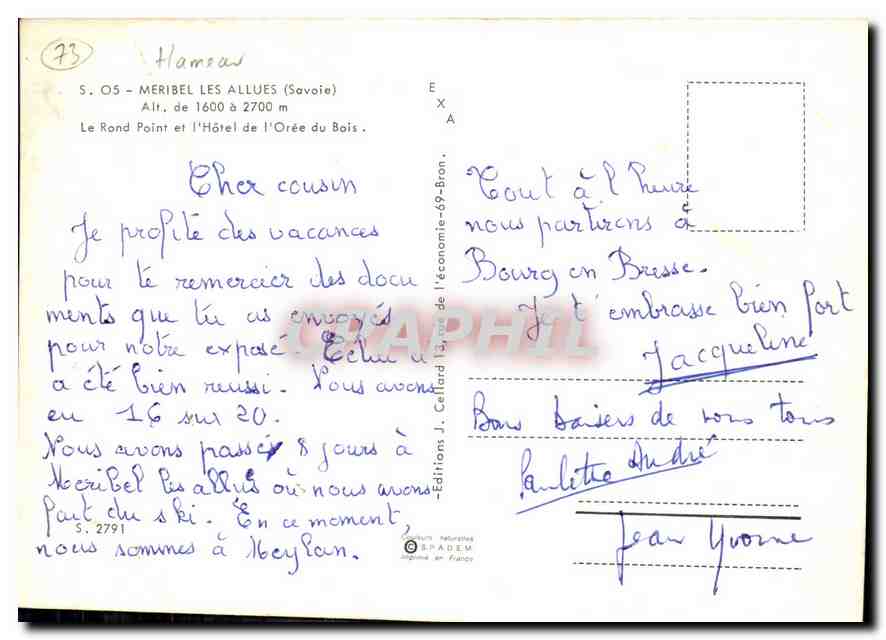 73
Hameau
S. O5 - MERIBEL LES ALLUES (Savoie)
Alt. de 1600 à 2700 m
Le Rond Point et l'Hôtel de l'Orée du Bois.
Cher cousin
Je profite des vacances
pour te remercier des docu
ments que tu as envoyés
pour notre exposé. Celui ci
a été bien reussi. Nous avons
eu 16 sur 20.
Nous avons passé 8 jours à
Meribel les allues où nous avons
fait du ski. En ce moment,
S. 2791
nous sommes à Meylan.
EXA
-Editions J. Cellard 13,rue de l'économie-69-Bron.
Couleurs naturelles
© S.P.A.D.E.M.
Imprimé en France
CPAPHIL
Tout à l'heure
nous partirons à
Bourg en Bresse.
Je t'embrasse bien fort
Jacqueline
Bons baisers de nous tous
Paulette André
Jean Yvonne